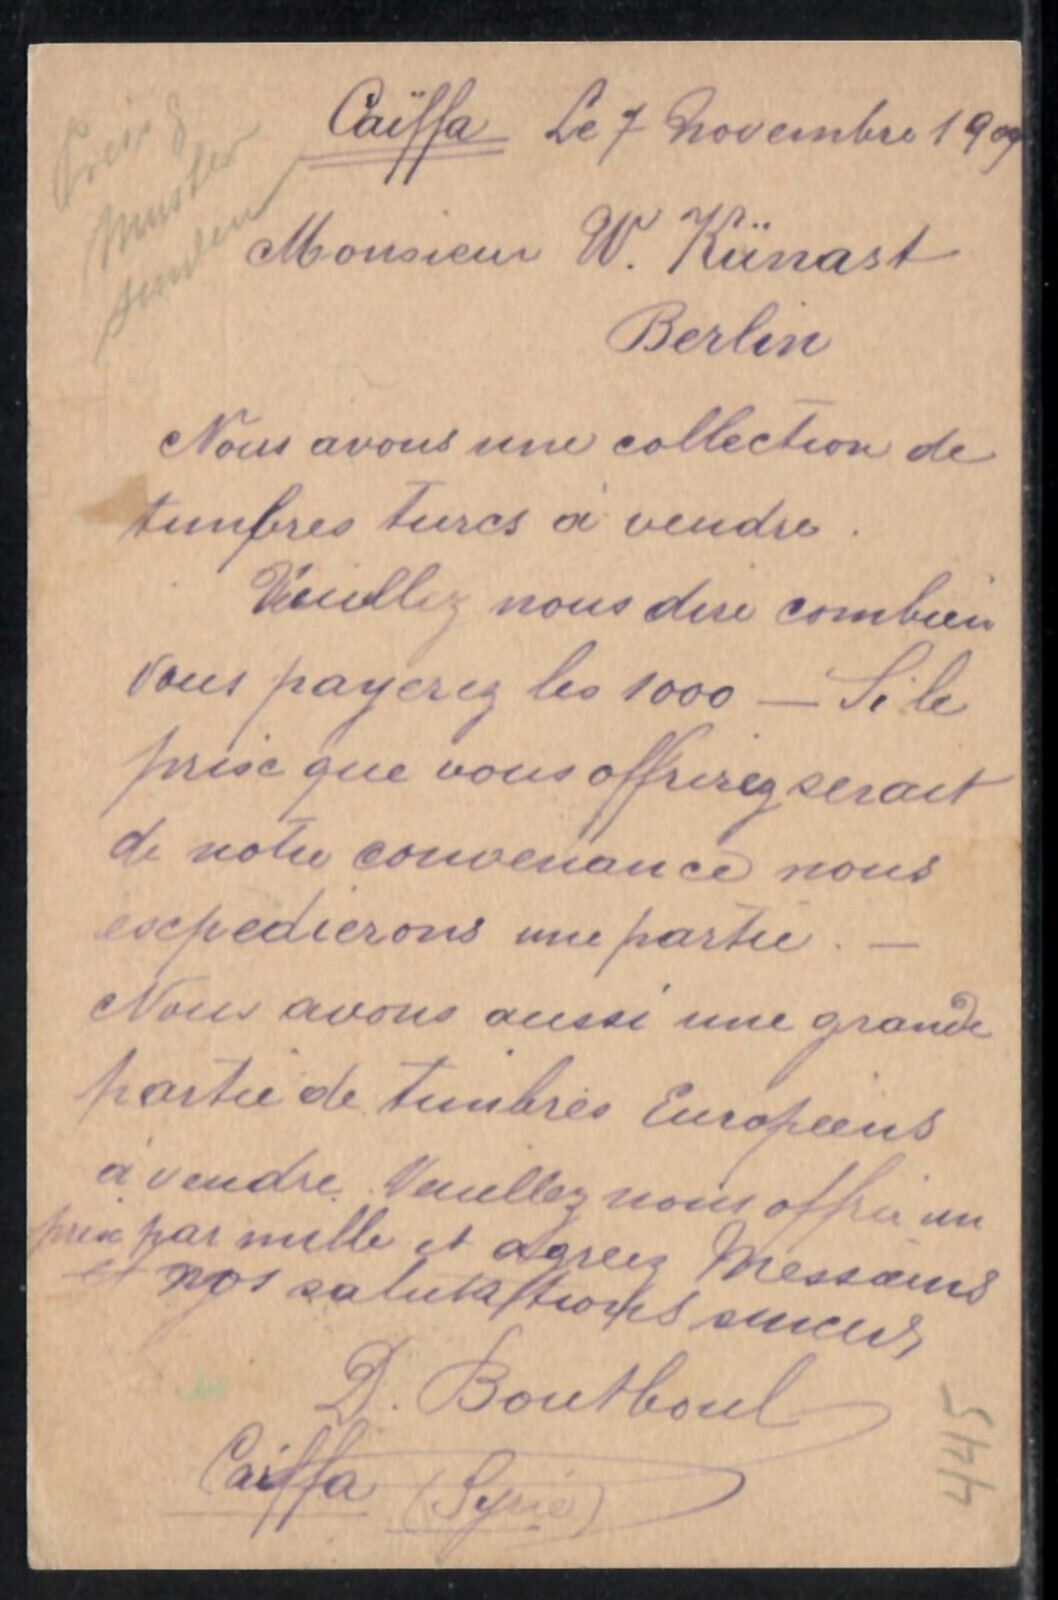 Caïffa Le 7 Novembre 1909
Monsieur W. Künast
Berlin
Nous avons une collection de
timbres turcs à vendre.
Veuillez nous dire combien
vous payerez les 1000 — Si le
prix que vous offrirez serait
de notre convenance nous
expedierons une partie. —
Nous avons aussi une grande
partie de timbres Européens
à vendre. Veuillez nous offrir un
prix par mille et agreez Messieurs
nos salutations sinceres
D. Bouthoul
Caiffa (Syrie)
Preis &
Muster
senden
445